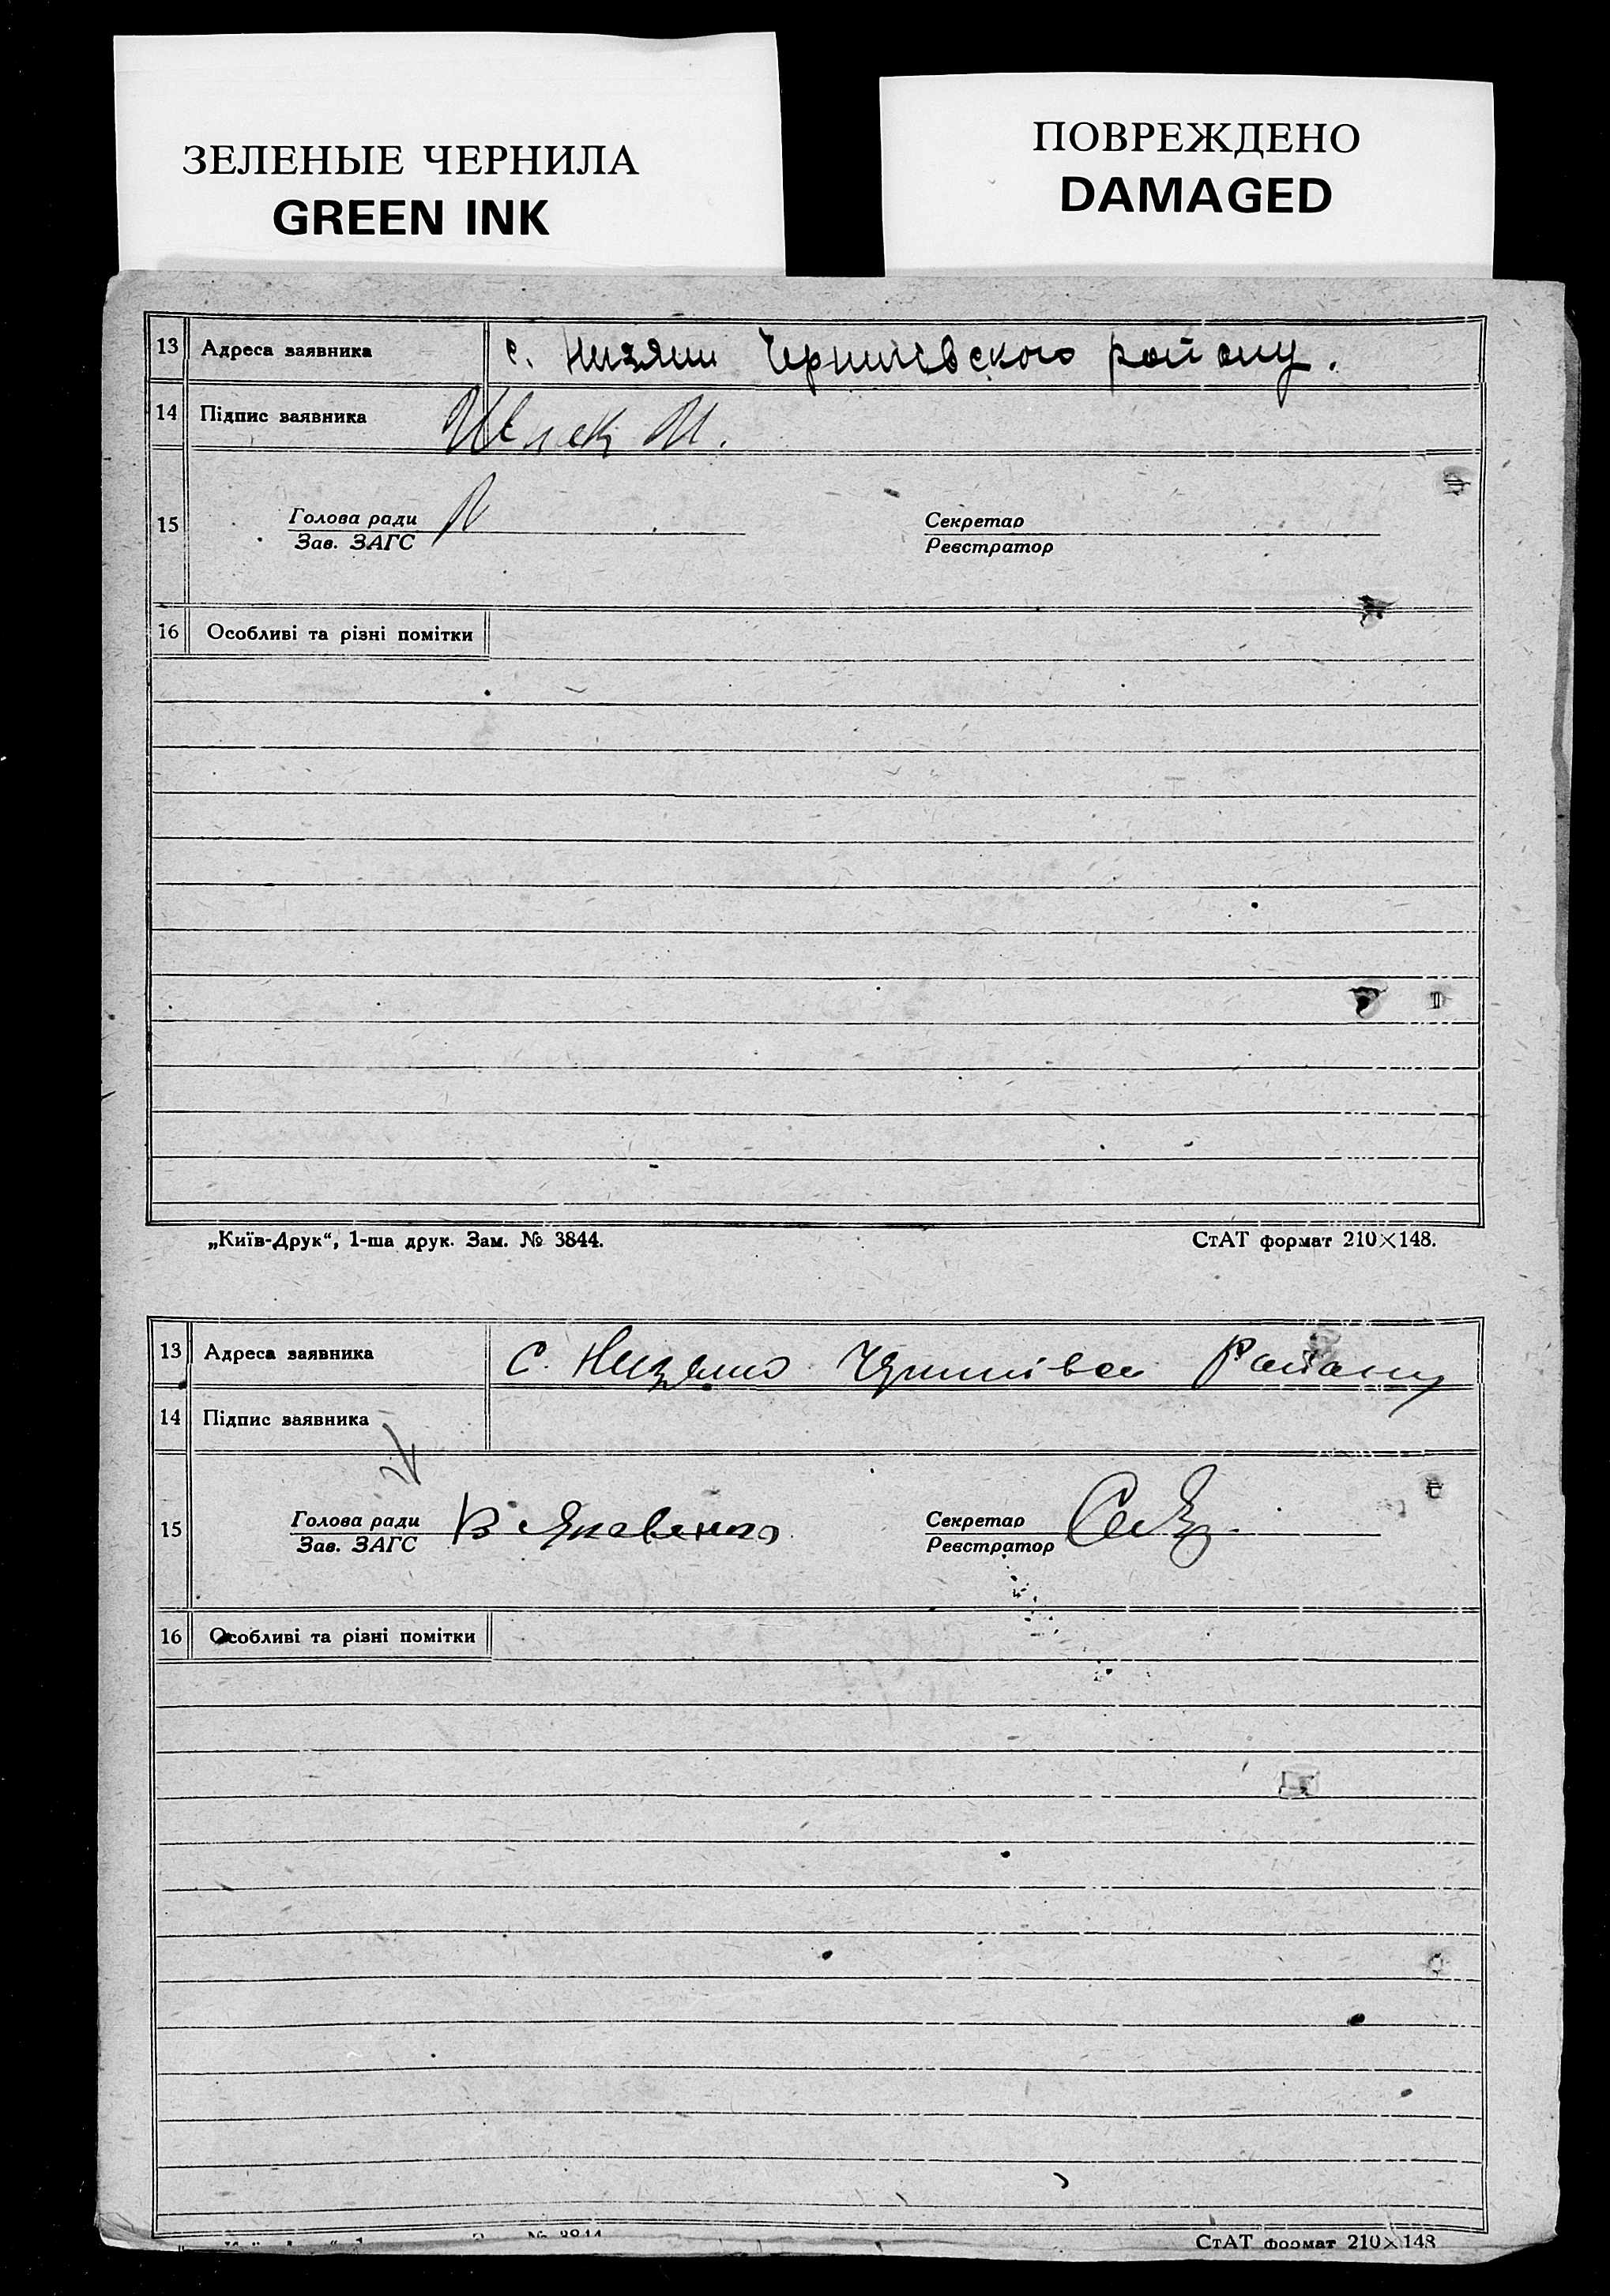 ЗЕЛЕНЫЕ ЧЕРНИЛА
GREEN INK
ПОВРЕЖДЕНО
DAMAGED
13 Адреса заявника с. Низяни Черн району.
14 Підпис заявника
15 Голова ради
Зав. ЗАГС
Секретар
Реєстратор
16 Особливі та різні помітки
„Київ-Друк“, 1-ша друк. Зам. № 3844.
СтАТ формат 210×148.
13 Адреса заявника С. Району
14 Підпис заявника
15 Голова ради В Яковенко
Зав. ЗАГС
Секретар
Реєстратор
16 Особливі та різні помітки
№ 3844
СтАТ формат 210×148